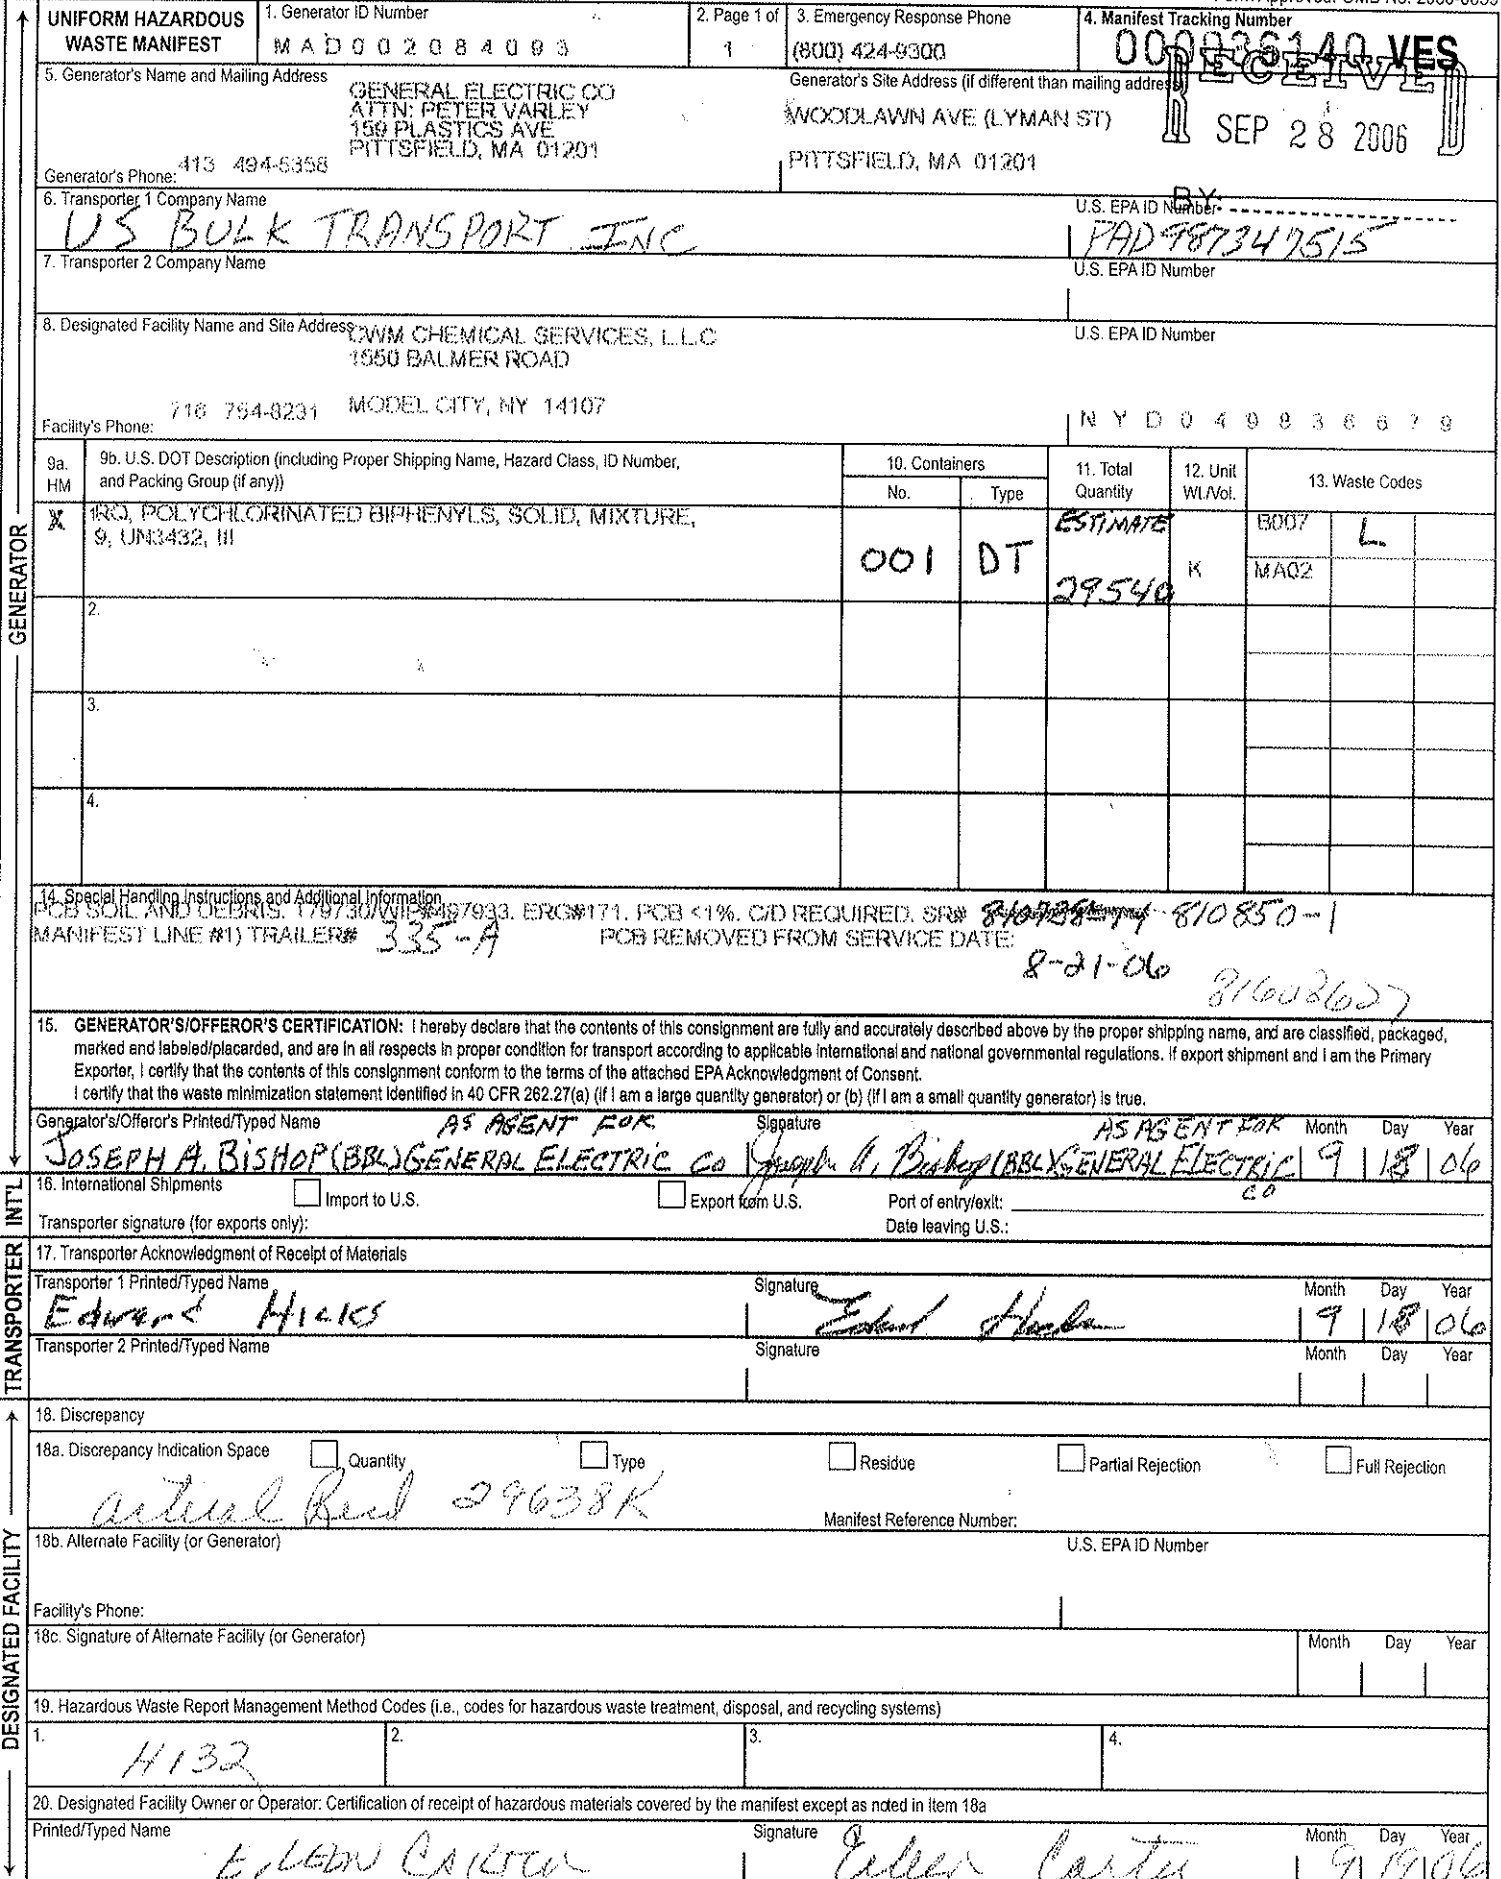 UNIFORM HAZARDOUS WASTE MANIFEST
1. Generator ID Number
MAD002084093
2. Page 1 of
1
3. Emergency Response Phone
(800) 424-9300
4. Manifest Tracking Number
000036140 VES
RECEIVED
SEP 28 2006
BY:
5. Generator's Name and Mailing Address
GENERAL ELECTRIC CO
ATTN: PETER VARLEY
159 PLASTICS AVE
PITTSFIELD, MA 01201
Generator's Site Address (if different than mailing address)
WOODLAWN AVE (LYMAN ST)
PITTSFIELD, MA 01201
Generator's Phone: 413 494-5358
6. Transporter 1 Company Name
US BULK TRANSPORT INC
U.S. EPA ID Number
PAD987347515
7. Transporter 2 Company Name
U.S. EPA ID Number
8. Designated Facility Name and Site Address
CWM CHEMICAL SERVICES, L.L.C
1550 BALMER ROAD
MODEL CITY, NY 14107
U.S. EPA ID Number
NYD049836679
Facility's Phone: 716 754-8231
9a. HM
9b. U.S. DOT Description (including Proper Shipping Name, Hazard Class, ID Number,
and Packing Group (if any))
10. Containers
No.
Type
11. Total Quantity
12. Unit Wt./Vol.
13. Waste Codes
X
1RQ, POLYCHLORINATED BIPHENYLS, SOLID, MIXTURE,
9, UN3432, III
001
DT
ESTIMATE
29540
K
B007
L
MA02
2.
3.
4.
14. Special Handling Instructions and Additional Information
PCB SOIL AND DEBRIS. 179730/WIP#497933. ERG#171. PCB <1%. C/D REQUIRED. SR# 810850-1
MANIFEST LINE #1) TRAILER# 335-A PCB REMOVED FROM SERVICE DATE:
8-21-06
81608627
15. GENERATOR'S/OFFEROR'S CERTIFICATION: I hereby declare that the contents of this consignment are fully and accurately described above by the proper shipping name, and are classified, packaged,
marked and labeled/placarded, and are in all respects in proper condition for transport according to applicable international and national governmental regulations. If export shipment and I am the Primary
Exporter, I certify that the contents of this consignment conform to the terms of the attached EPA Acknowledgment of Consent.
I certify that the waste minimization statement identified in 40 CFR 262.27(a) (if I am a large quantity generator) or (b) (if I am a small quantity generator) is true.
Generator's/Offeror's Printed/Typed Name
AS AGENT FOR
JOSEPH A. BISHOP (BBL) GENERAL ELECTRIC CO
Signature
AS AGENT FOR
Joseph A. Bishop (BBL) GENERAL ELECTRIC CO
Month Day Year
9 18 06
16. International Shipments
Import to U.S.
Export from U.S.
Port of entry/exit:
Transporter signature (for exports only):
Date leaving U.S.:
17. Transporter Acknowledgment of Receipt of Materials
Transporter 1 Printed/Typed Name
Edward Hicks
Signature
Month Day Year
9 18 06
Transporter 2 Printed/Typed Name
Signature
Month Day Year
18. Discrepancy
18a. Discrepancy Indication Space
Quantity
Type
Residue
Partial Rejection
Full Rejection
actual Recd 29638K
Manifest Reference Number:
18b. Alternate Facility (or Generator)
U.S. EPA ID Number
Facility's Phone:
18c. Signature of Alternate Facility (or Generator)
Month Day Year
19. Hazardous Waste Report Management Method Codes (i.e., codes for hazardous waste treatment, disposal, and recycling systems)
1.
H132
2.
3.
4.
20. Designated Facility Owner or Operator: Certification of receipt of hazardous materials covered by the manifest except as noted in Item 18a
Printed/Typed Name
EILEEN CARTER
Signature
Eileen Carter
Month Day Year
9 19 06
GENERATOR
INT'L
TRANSPORTER
DESIGNATED FACILITY